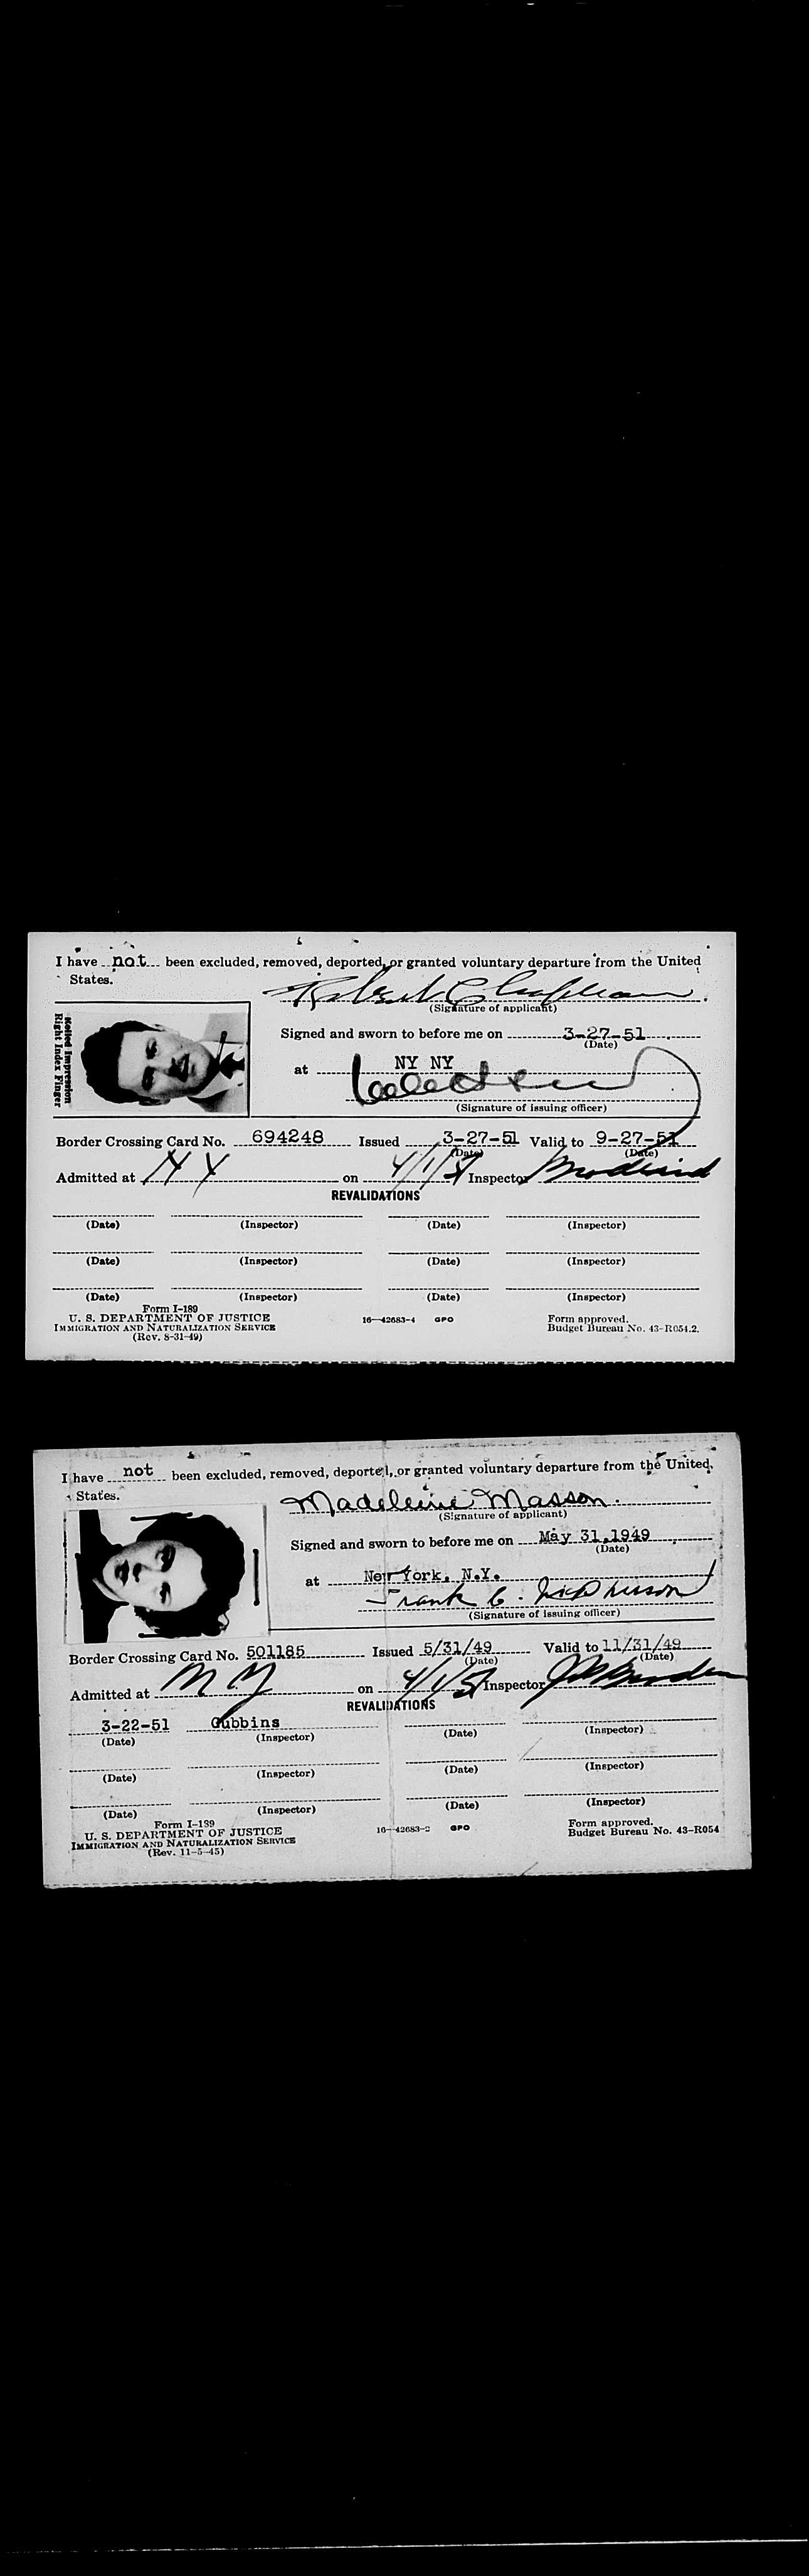 I have not been excluded, removed, deported, or granted voluntary departure from the United
States.
Robert C Chapman
(Signature of applicant)
Rolled Impression
Right Index Finger
Signed and sworn to before me on 3-27-51
(Date)
at NY NY
(Signature of issuing officer)
Border Crossing Card No. 694248 Issued 3-27-51 Valid to 9-27-51
(Date) (Date)
Admitted at N Y on 4/1/51 Inspector
REVALIDATIONS
(Date) (Inspector) (Date) (Inspector)
(Date) (Inspector) (Date) (Inspector)
(Date) (Inspector) (Date) (Inspector)
Form I-189
U. S. DEPARTMENT OF JUSTICE 16—42683-4 GPO Form approved.
IMMIGRATION AND NATURALIZATION SERVICE Budget Bureau No. 43-R054.2.
(Rev. 8-31-49)
I have not been excluded, removed, deported, or granted voluntary departure from the United
States.
Madeleine Masson.
(Signature of applicant)
Signed and sworn to before me on May 31,1949
(Date)
at New York, N.Y.
Frank C.
(Signature of issuing officer)
Border Crossing Card No. 501185 Issued 5/31/49 Valid to 11/31/49
(Date) (Date)
Admitted at N Y on 4/1/51 Inspector
REVALIDATIONS
3-22-51 Gubbins
(Date) (Inspector) (Date) (Inspector)
(Date) (Inspector) (Date) (Inspector)
(Date) (Inspector) (Date) (Inspector)
Form I-189
U. S. DEPARTMENT OF JUSTICE 16—42683-2 GPO Form approved.
IMMIGRATION AND NATURALIZATION SERVICE Budget Bureau No. 43-R054
(Rev. 11-5-45)